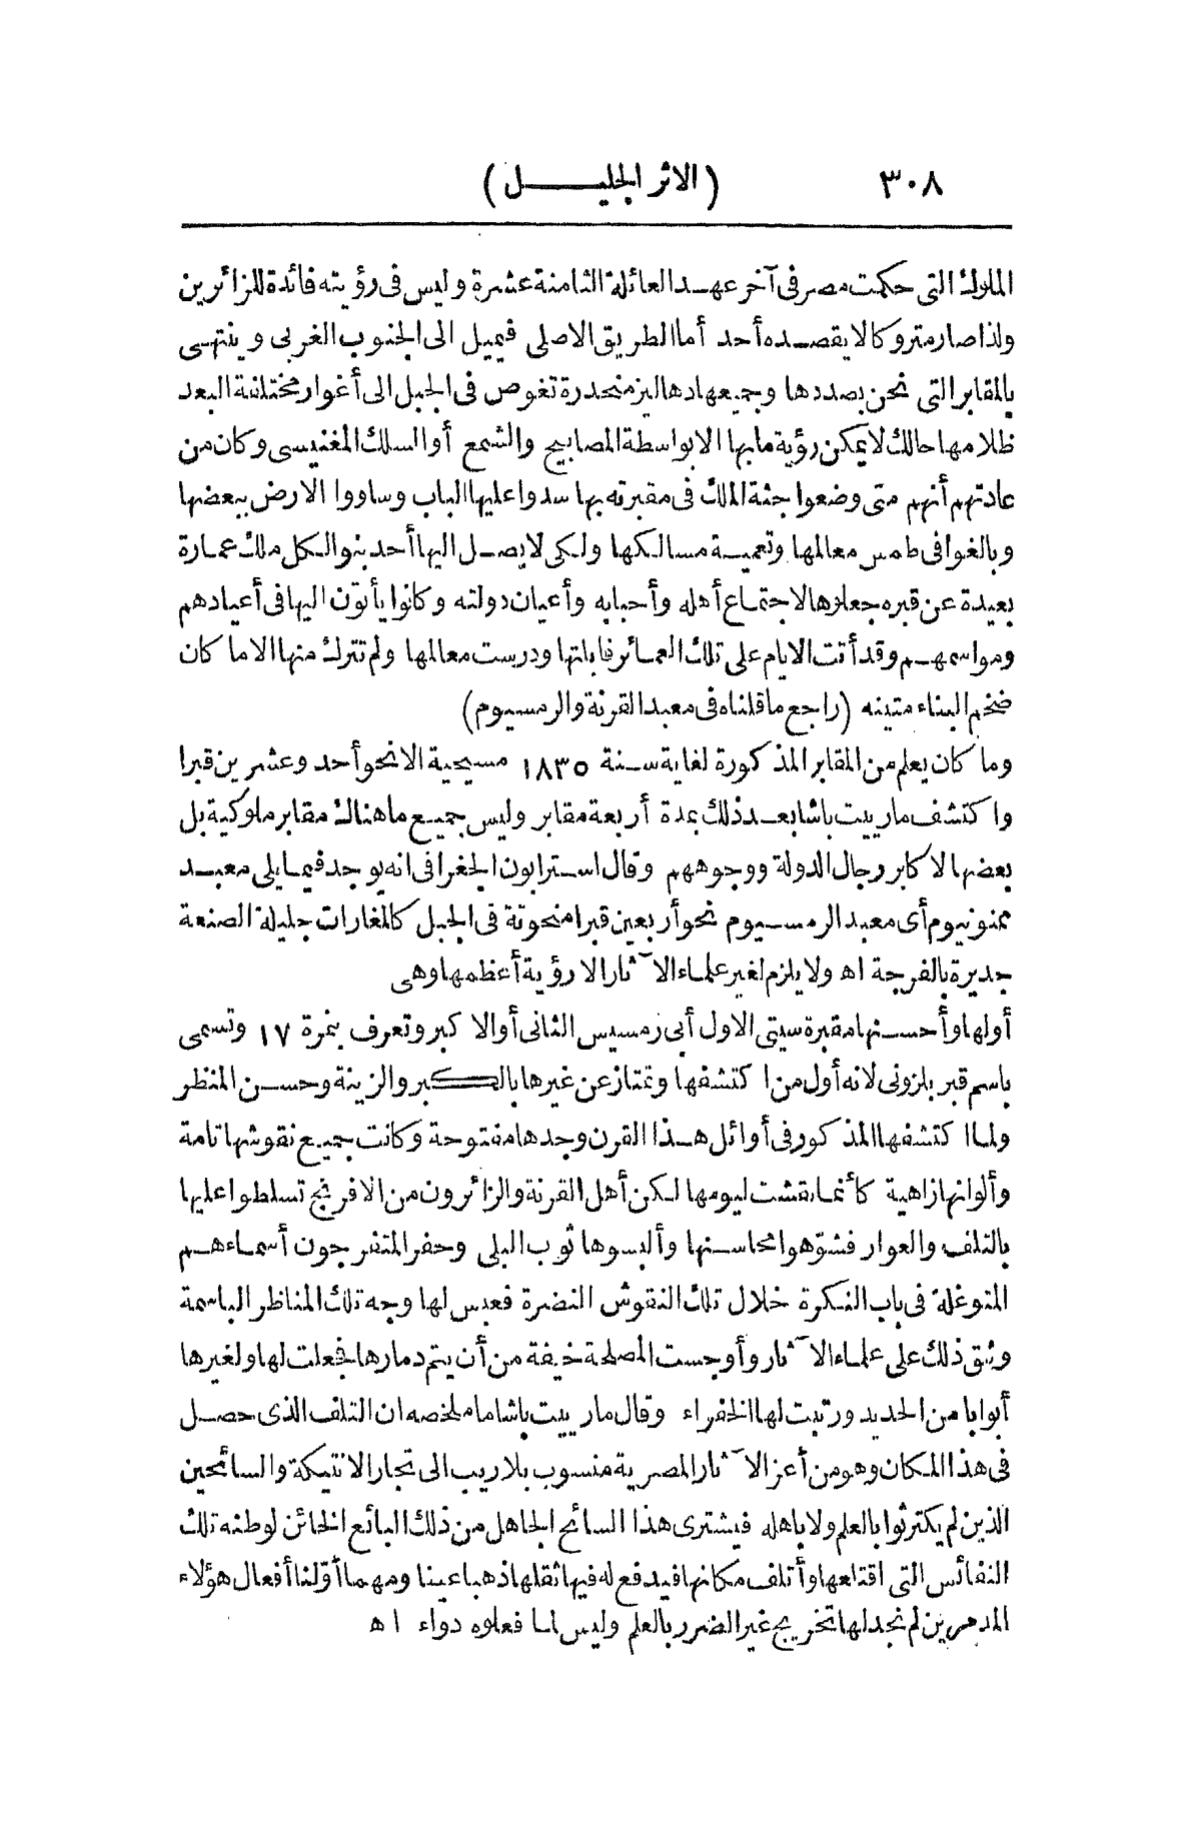 ٣٠٨ (الاثر الجليل)
الملوك التى حكمت مصر فى آخر عهد العائلة الثامنة عشرة وليس فى رؤيته فائدة للزائرين
ولذا صار متروكا لا يقصده أحد أما الطريق الاصلى فيميل الى الجنوب الغربى وينتهى
بالمقابر التى نحن بصددها وجميعها دهاليز منحدرة تغوص فى الجبل الى أغوار مختلفة البعد
ظلامها حالك لا يمكن رؤية ما بها الا بواسطة المصابيح والشمع أو السلك المغنيسى وكان من
عادتهم أنهم متى وضعوا جثة الملك فى مقبرته بها سدوا عليها الباب وساووا الارض ببعضها
وبالغوا فى طمس معالمها وتعمية مسالكها ولكى لا يصل اليها أحد بنوا لكل ملك عمارة
بعيدة عن قبره جعلوها لاجتماع أهله وأحبابه وأعيان دولته وكانوا يأتون اليها فى أعيادهم
ومواسمهم وقد أتت الايام على تلك العمائر فابلتها ودرست معالمها ولم تترك منها الا ما كان
ضخم البناء متينه (راجع ما قلناه فى معبد القرنة والرمسيوم)
وما كان يعلم من المقابر المذكورة لغاية سنة ١٨٣٥ مسيحية الا نحو أحد وعشرين قبرا
واكتشف مارييت باشا بعد ذلك بمدة أربعة مقابر وليس جميع ما هناك مقابر ملوكية بل
بعضها لاكابر رجال الدولة ووجوههم وقال استرابون الجغرافى انه يوجد فيما يلى معبد
ممنونيوم أى معبد الرمسيوم نحو أربعين قبرا منحوتة فى الجبل كالمغارات جليلة الصنعة
جديرة بالفرجة اه ولا يلزم لغير علماء الآثار الا رؤية أعظمها وهى
أولها وأحسنها مقبرة سيتى الاول أبى رمسيس الثانى أو الاكبر وتعرف بنمرة ١٧ وتسمى
باسم قبر بلزونى لانه أول من اكتشفها وتمتاز عن غيرها بالكبر والزينة وحسن المنظر
ولما اكتشفها المذكور فى أوائل هذا القرن وجدها مفتوحة وكانت جميع نقوشها تامة
وألوانها زاهية كأنما نقشت ليومها لكن أهل القرنة والزائرون من الافرنج تسلطوا عليها
بالتلف والعوار فشوّهوا محاسنها وألبسوها ثوب البلى وحفر المتفرجون أسماءهم
المتوغلة فى باب النكرة خلال تلك النقوش النضرة فعبس لها وجه تلك المناظر الباسمة
وشق ذلك على علماء الآثار وأوجست المصلحة خيفة من أن يتم دمارها فجعلت لها ولغيرها
أبوابا من الحديد ورتبت لها الخفراء وقال مارييت باشا ما ملخصه ان التلف الذى حصل
فى هذا المكان وهو من أعز الآثار المصرية منسوب بلا ريب الى تجار الانتيكة والسائحين
الذين لم يكترثوا بالعلم ولا باهله فيشترى هذا السائح الجاهل من ذلك البائع الخائن لوطنه تلك
النفائس التى اقتلعها وأتلف مكانها فيدفع له فيها ثقلها ذهبا عينا ومهما أوّلنا أفعال هؤلاء
المدمرين لم نجد لها تخريج غير الضرر بالعلم وليس لما فعلوه دواء اه